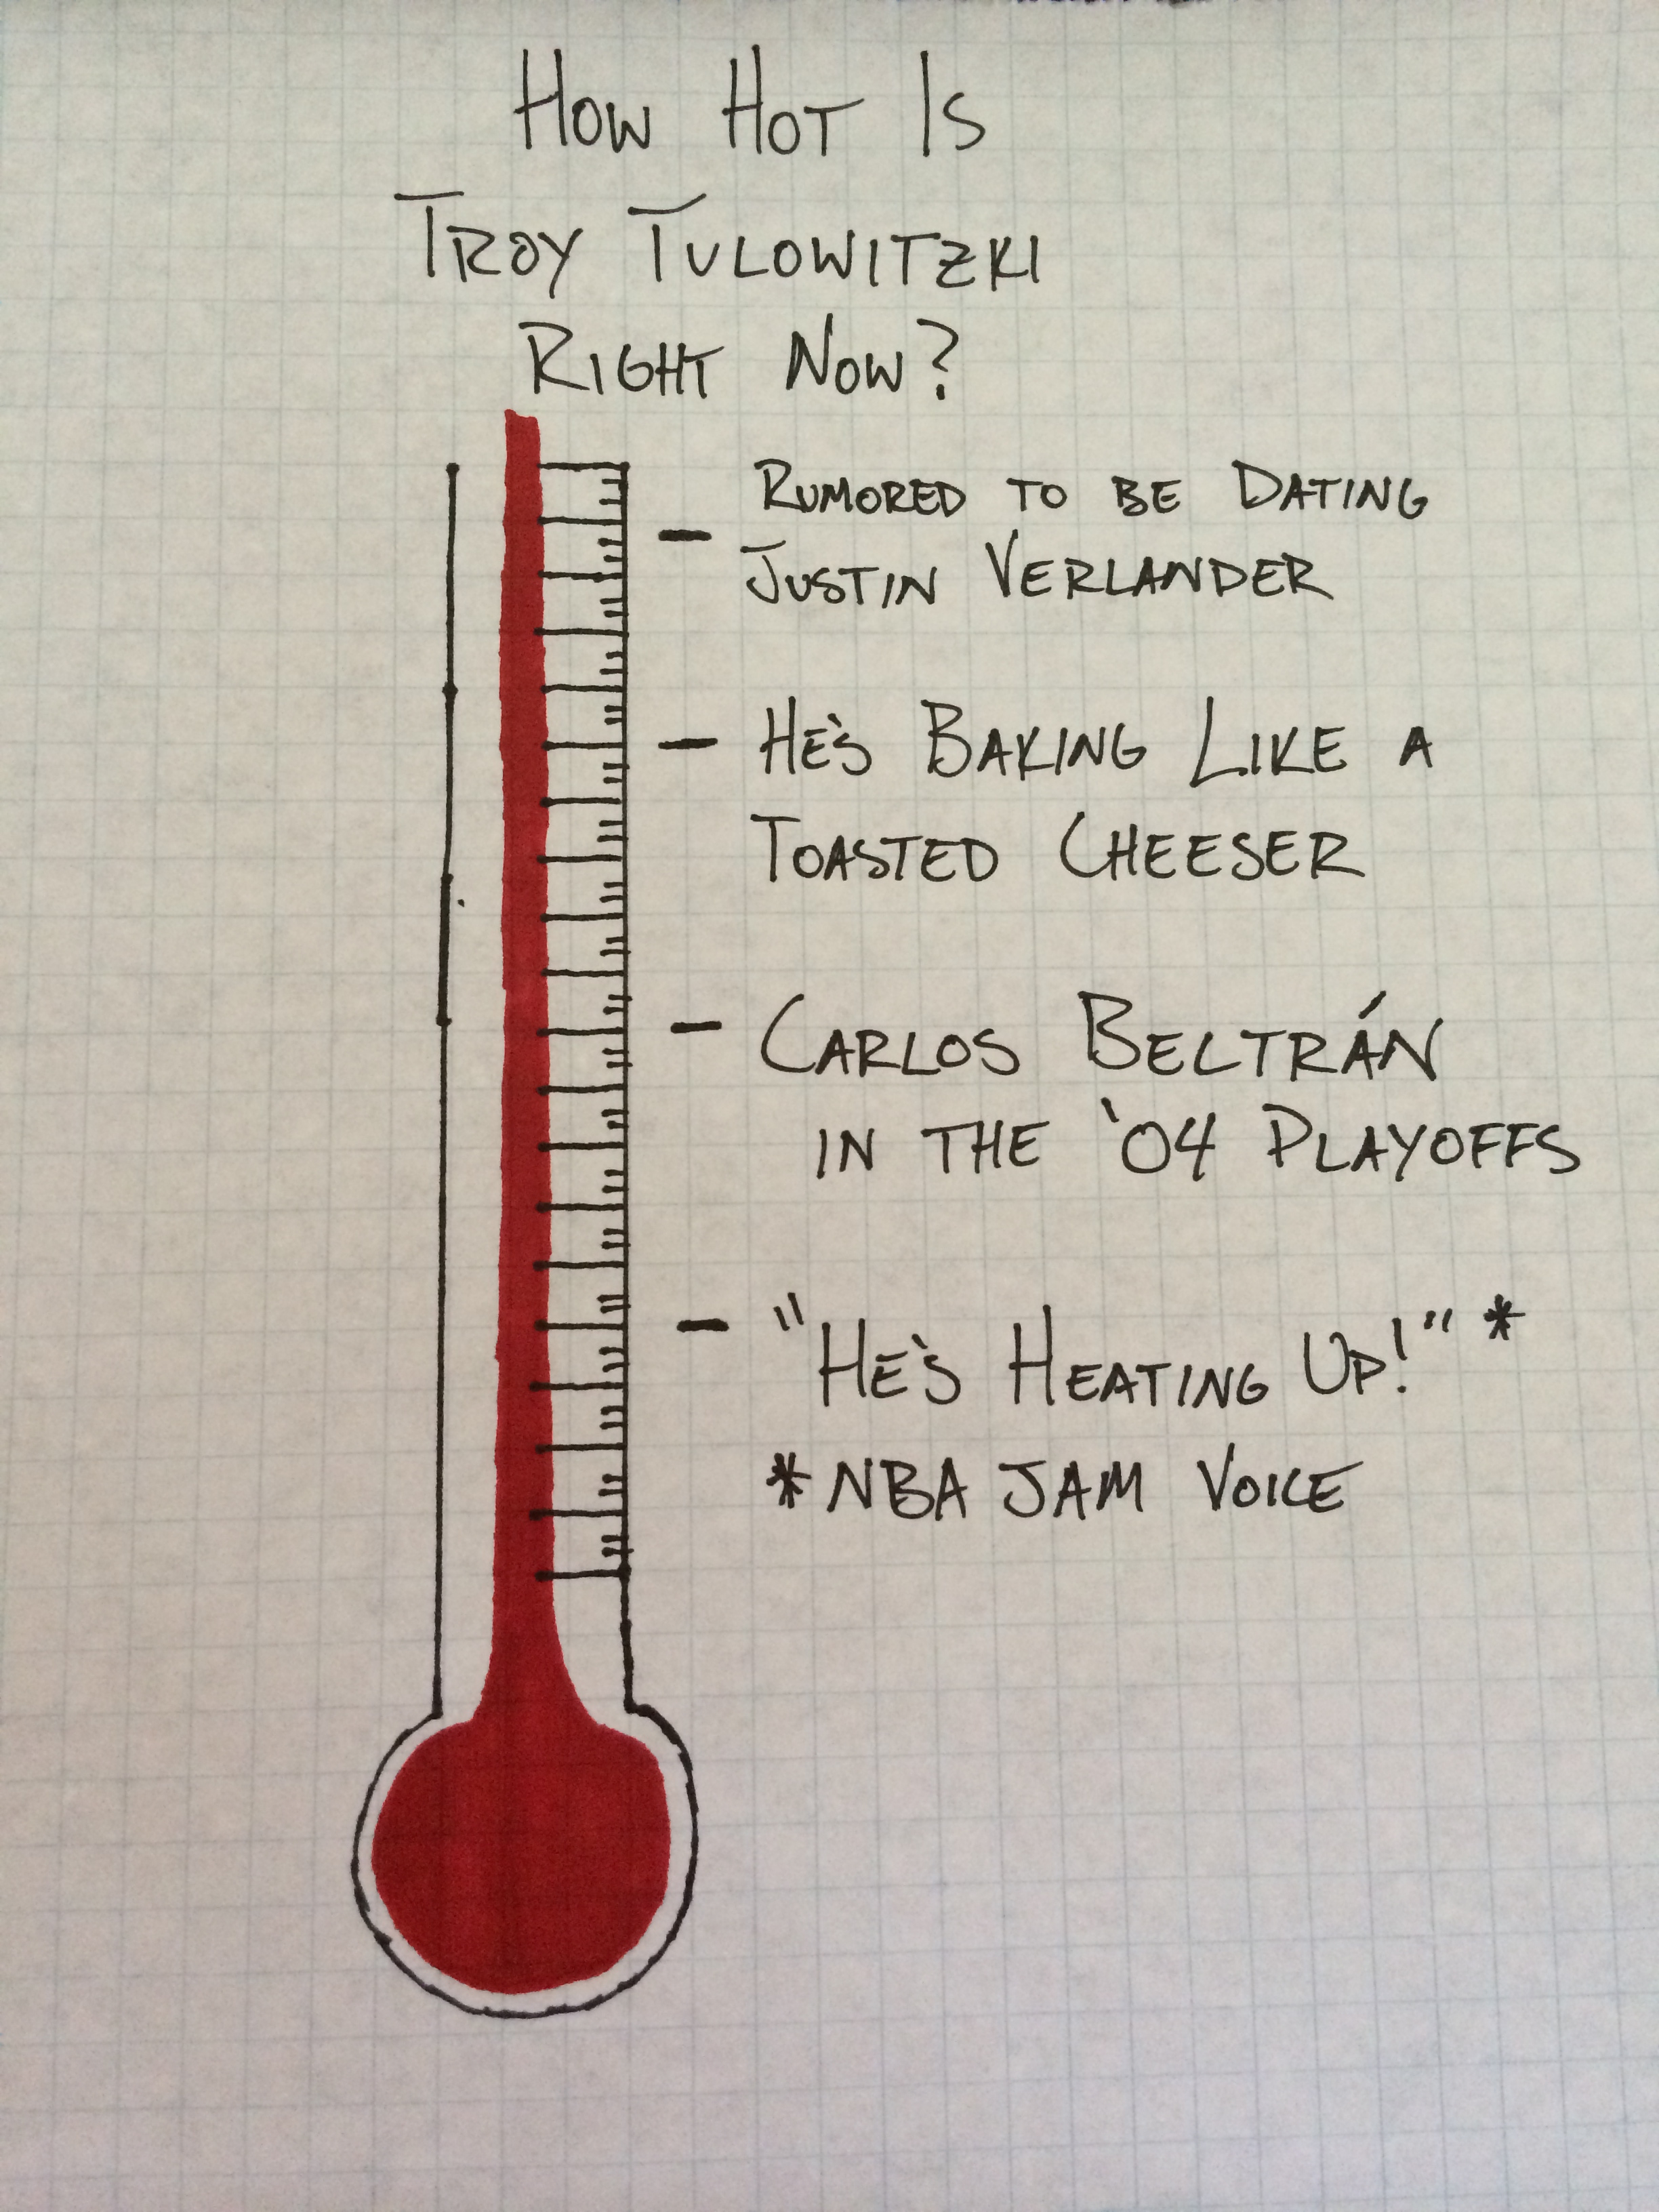 How Hot Is
Troy Tulowitzki
Right Now?
Rumored to be Dating
Justin Verlander
He's Baking Like a
Toasted Cheeser
Carlos Beltrán
in the '04 Playoffs
"He's Heating Up!" *
* NBA Jam Voice